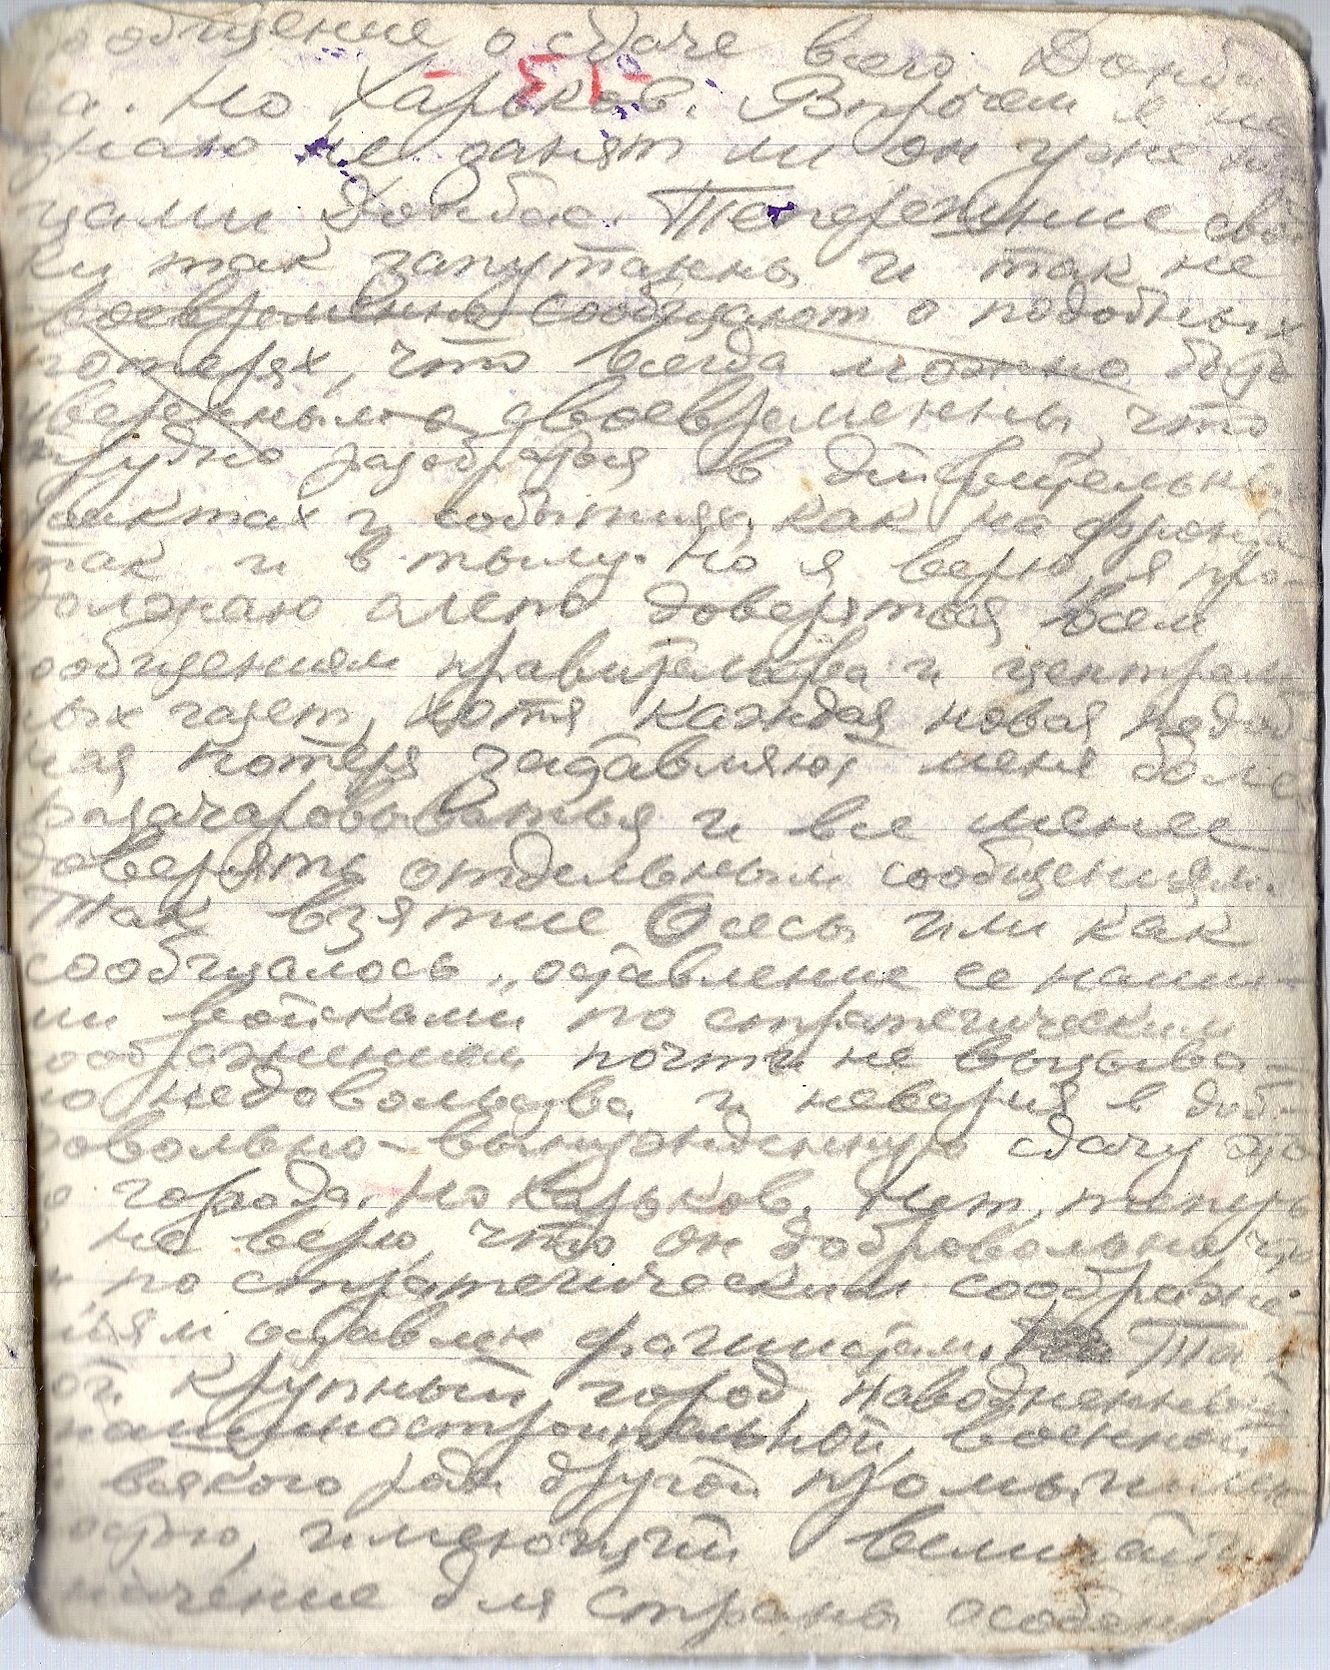 ообщение о сдаче всего Донб
са. Но Харьков. Впрочем я не
знаю не занят ли он уже
цами Донбас. Теперешние сво
ки так запутанны и так не
воевременно сообщают о подобных
потерях, что всегда можно будь
уверенным о своевременны, что
трудно разобраться в действительны
фактах и событиях, как на фронта
так и в тылу. Но я верю, я про-
должаю слепо доверяться всем
ообщениям правительства и централ
ных газет, хотя каждая новая подоб
ная потеря заставляют меня более
разачаровываться и все менее
доверять отдельным сообщениям.
Так взятие Одесы или как
сообщалось „оставление ее наши-
ми войсками по стратегическим
сооброжениям почти не вызыва-
ло недовольства и неверия в доб-
ровольно-вынужденную сдачу это
о города. Но Харьков. Нет, теперь
не верю, что он добровольно, и
и по стратегическим соображе-
ниям оставлен фашистам. Та
ой крупный город, наводненный
машиностроительной, военной
и всякого рода другой промышлен
остью, имеющий величай
начение для страны особен